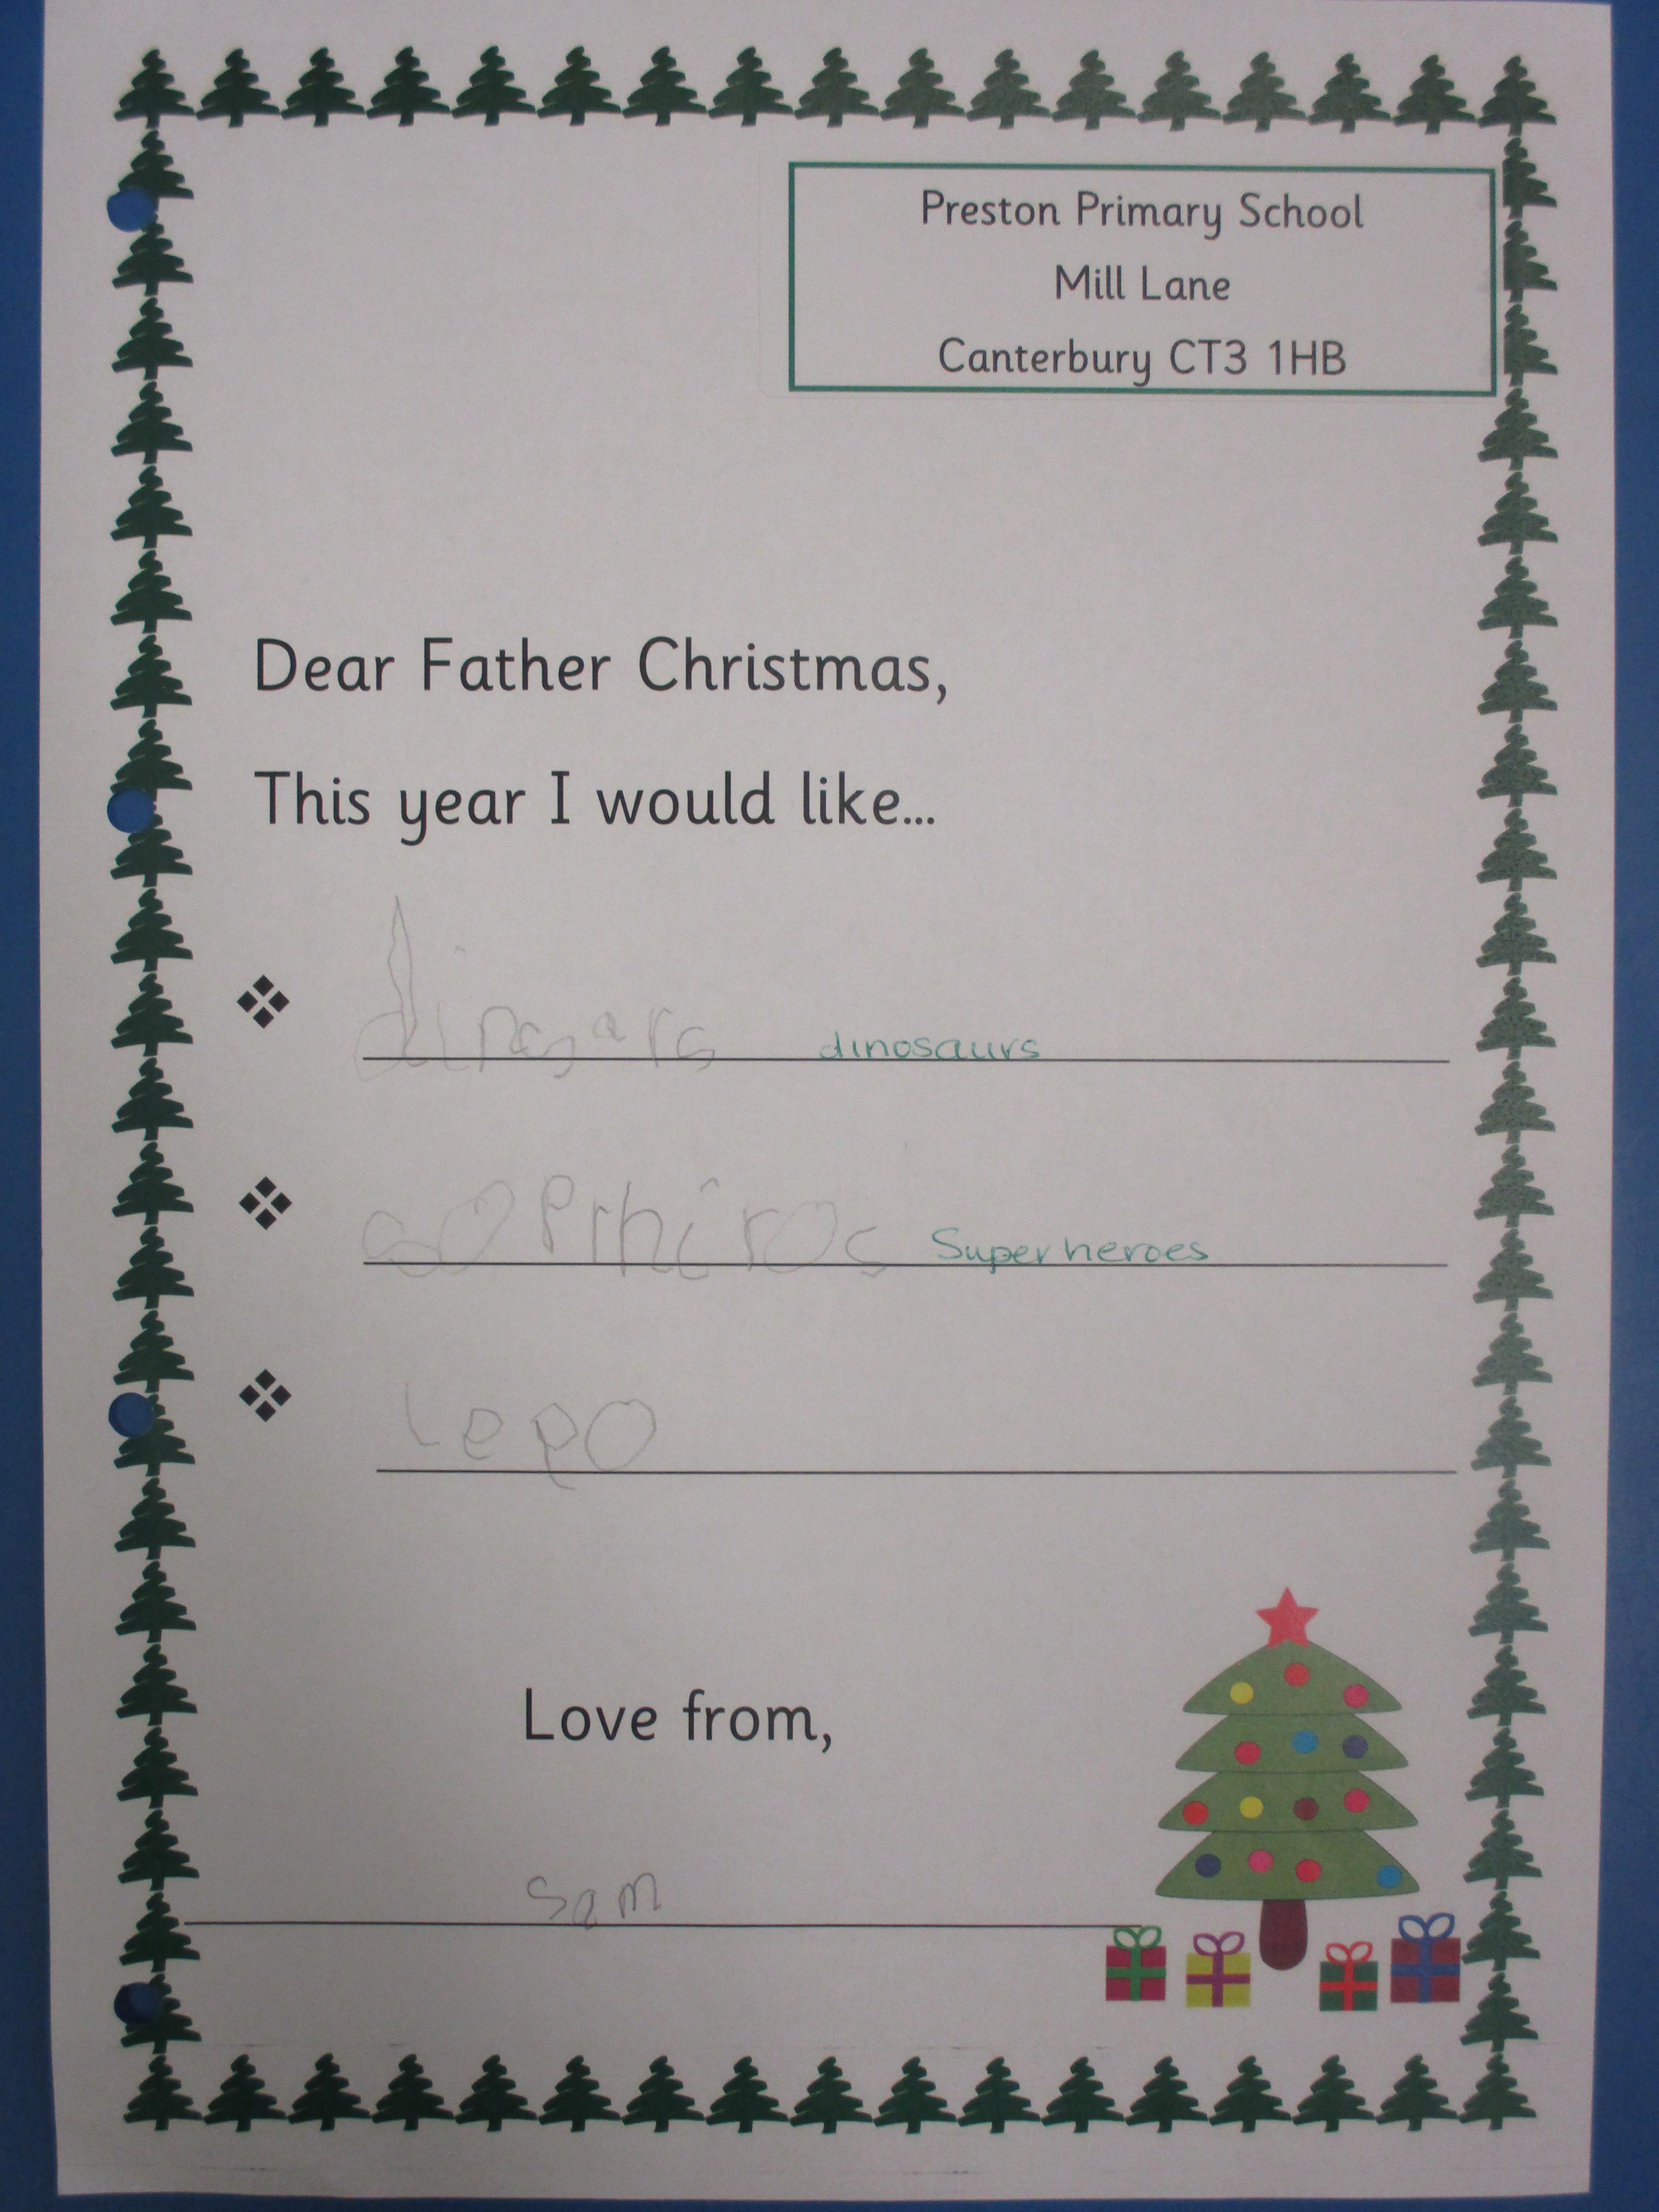 Preston Primary School
Mill Lane
Canterbury CT3 1HB
Dear Father Christmas,
This year I would like...
dinosaurs
soprhiros Superheroes
lego
Love from,
Sam